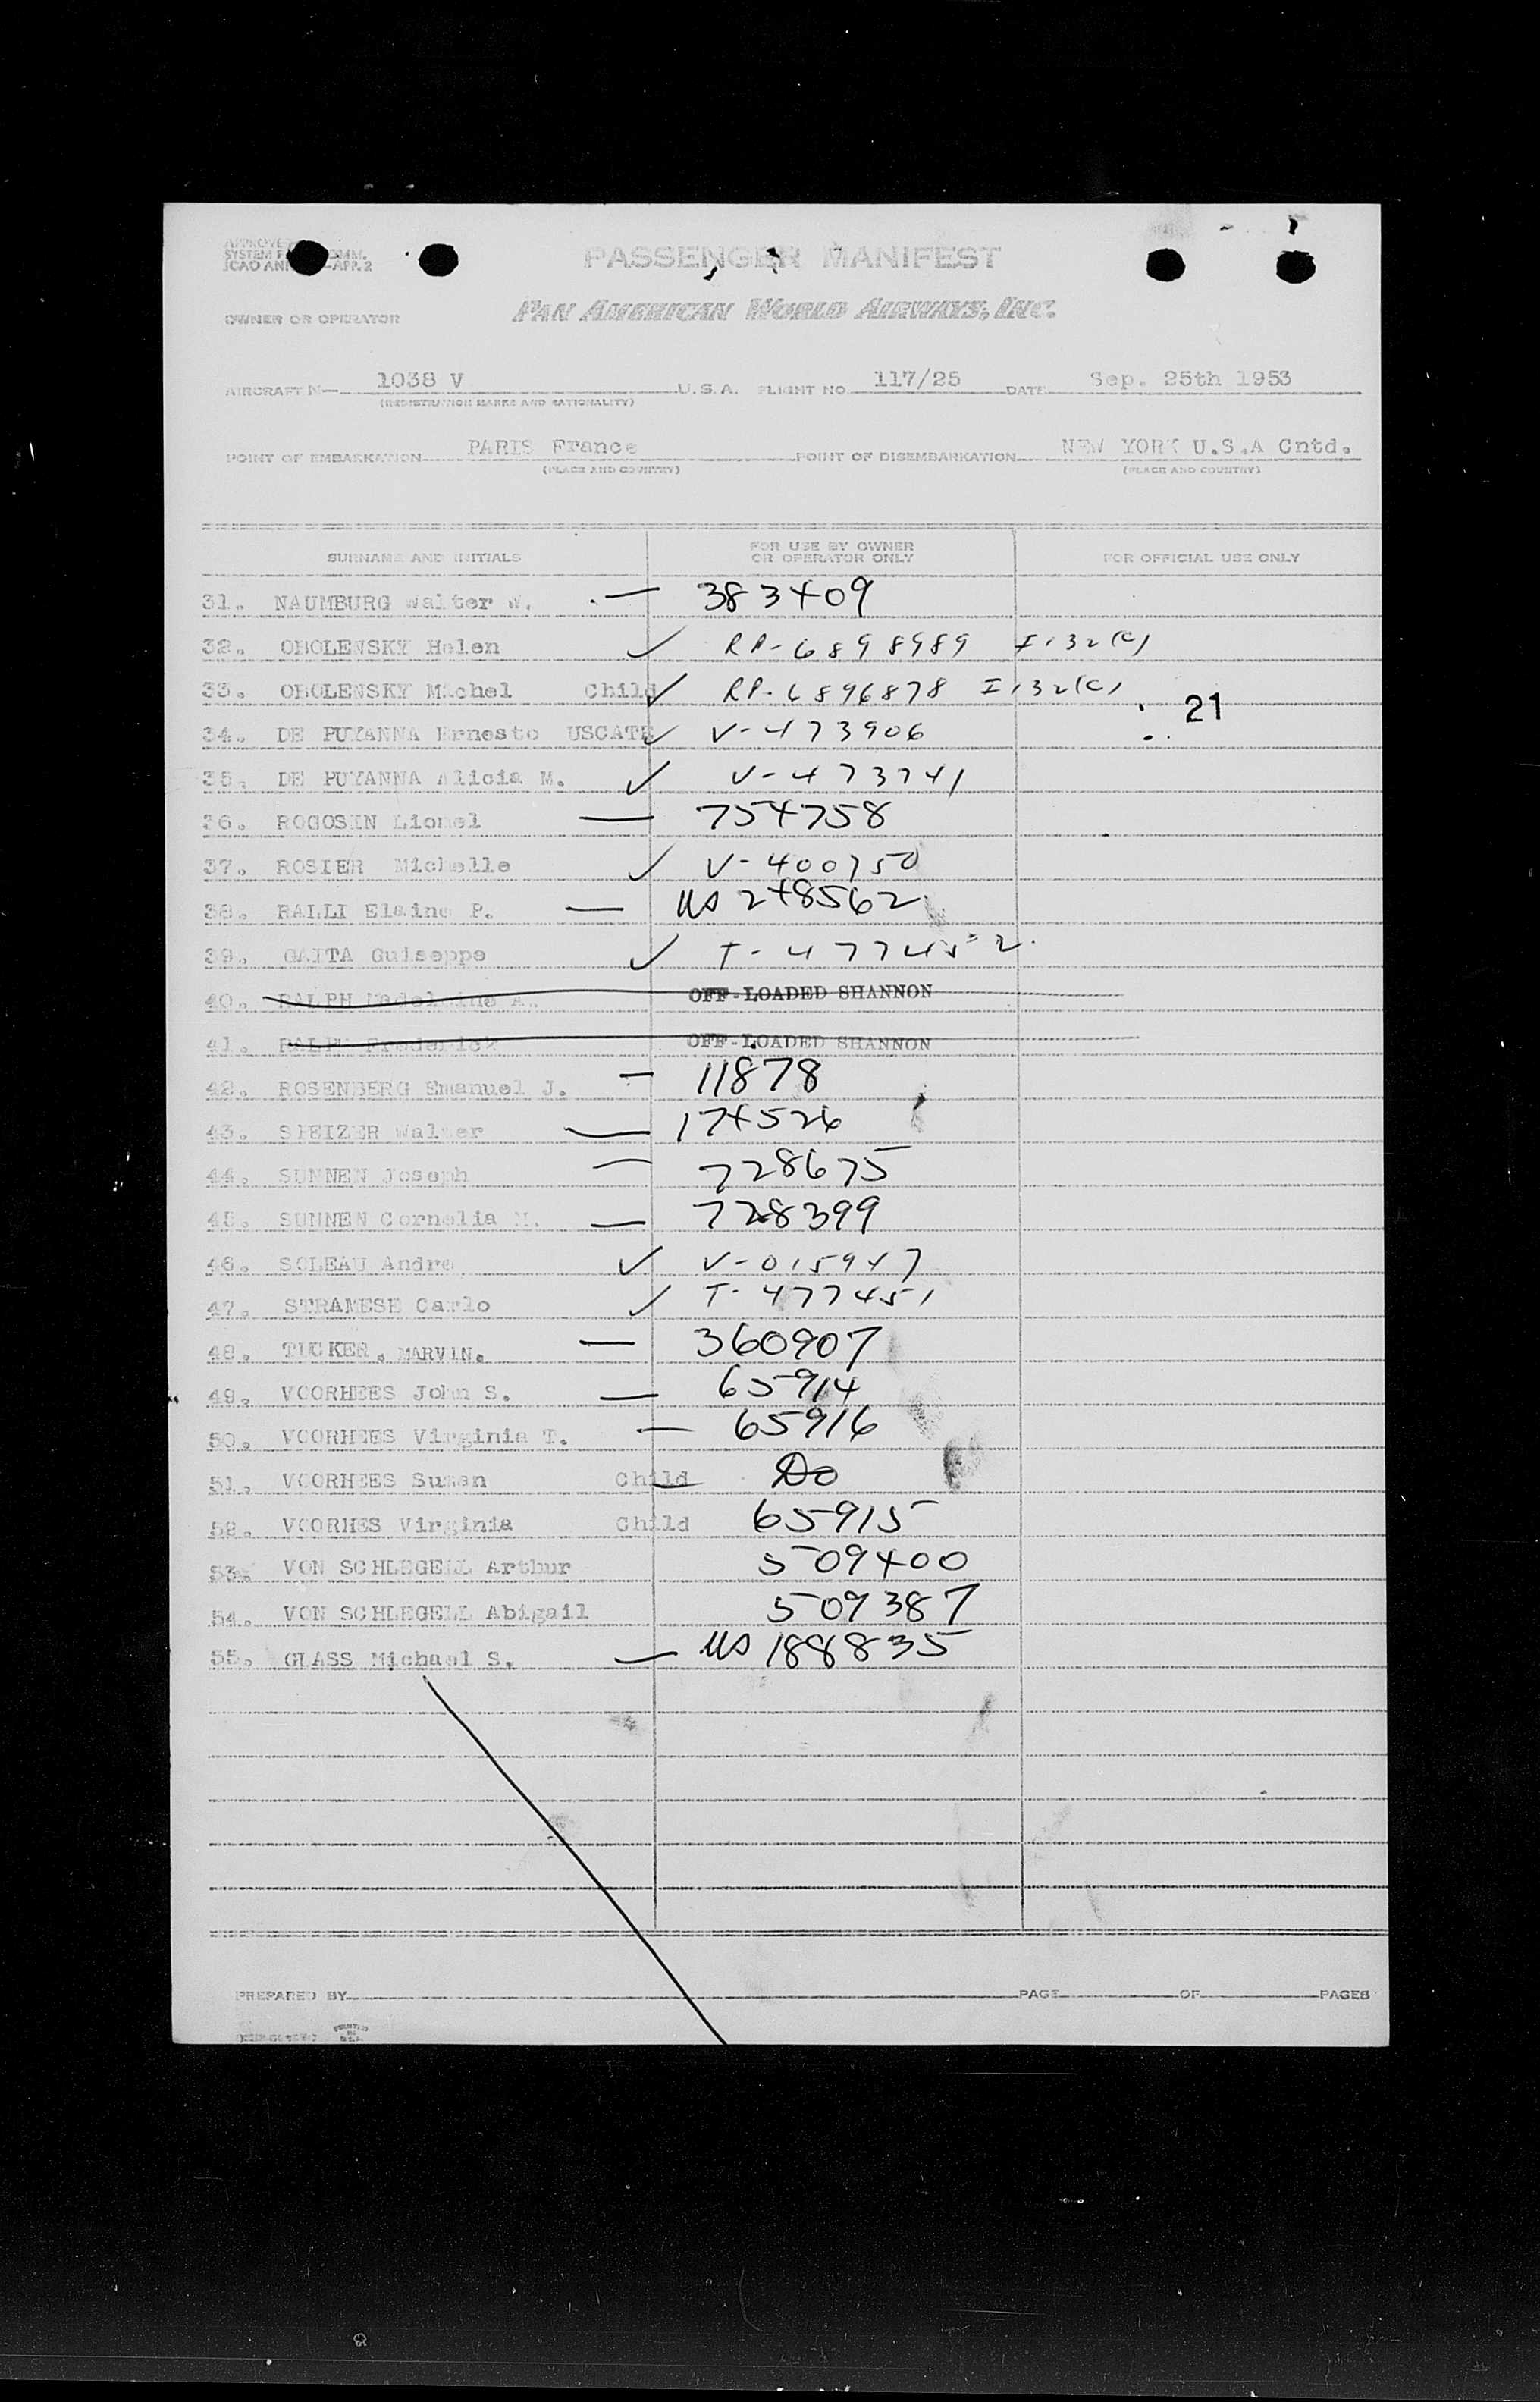 PASSENGER MANIFEST
OWNER OR OPERATOR PAN AMERICAN WORLD AIRWAYS, INC.
AIRCRAFT N— 1038 V U.S.A. FLIGHT NO 117/25 DATE Sep. 25th 1953
(REGISTRATION MARKS AND NATIONALITY)
POINT OF EMBARKATION PARIS France POINT OF DISEMBARKATION NEW YORK U.S.A Cntd.
(PLACE AND COUNTRY) (PLACE AND COUNTRY)
SURNAME AND INITIALS FOR USE BY OWNER OR OPERATOR ONLY FOR OFFICIAL USE ONLY
31. NAUMBURG Walter W. — 383409
32. OBOLENSKY Helen ✓ RP-6898989 I-132(c)
33. OBOLENSKY Michel Child ✓ RP-6896878 I-132(c)
21
34. DE PUYANNA Ernesto USCATE ✓ V-473906
35. DE PUYANNA Alicia M. ✓ V-473741
36. ROGOSIN Lionel — 754758
37. ROSIER Michelle ✓ V-400750
38. RALLI Elaine P. — US 248562
39. GAITA Guiseppe ✓ T-477452
40. RALPH Madeleine A. OFF-LOADED SHANNON
41. RALPH Frederick OFF-LOADED SHANNON
42. ROSENBERG Emanuel J. — 11878
43. SPEIZER Walter — 174526
44. SUNNEN Joseph — 728675
45. SUNNEN Cornelia M. — 728399
46. SOLEAU Andre ✓ V-015947
47. STRAMESE Carlo ✓ T-477451
48. TUCKER. MARVIN. — 360907
49. VOORHEES John S. — 65914
50. VOORHEES Virginia T. — 65916
51. VOORHEES Susan Child — Do
52. VOORHES Virginia Child 65915
53. VON SCHLEGELL Arthur 509400
54. VON SCHLEGELL Abigail 509387
55. GLASS Michael S. — US 188835
PREPARED BY PAGE OF PAGES
PRINTED IN U.S.A.